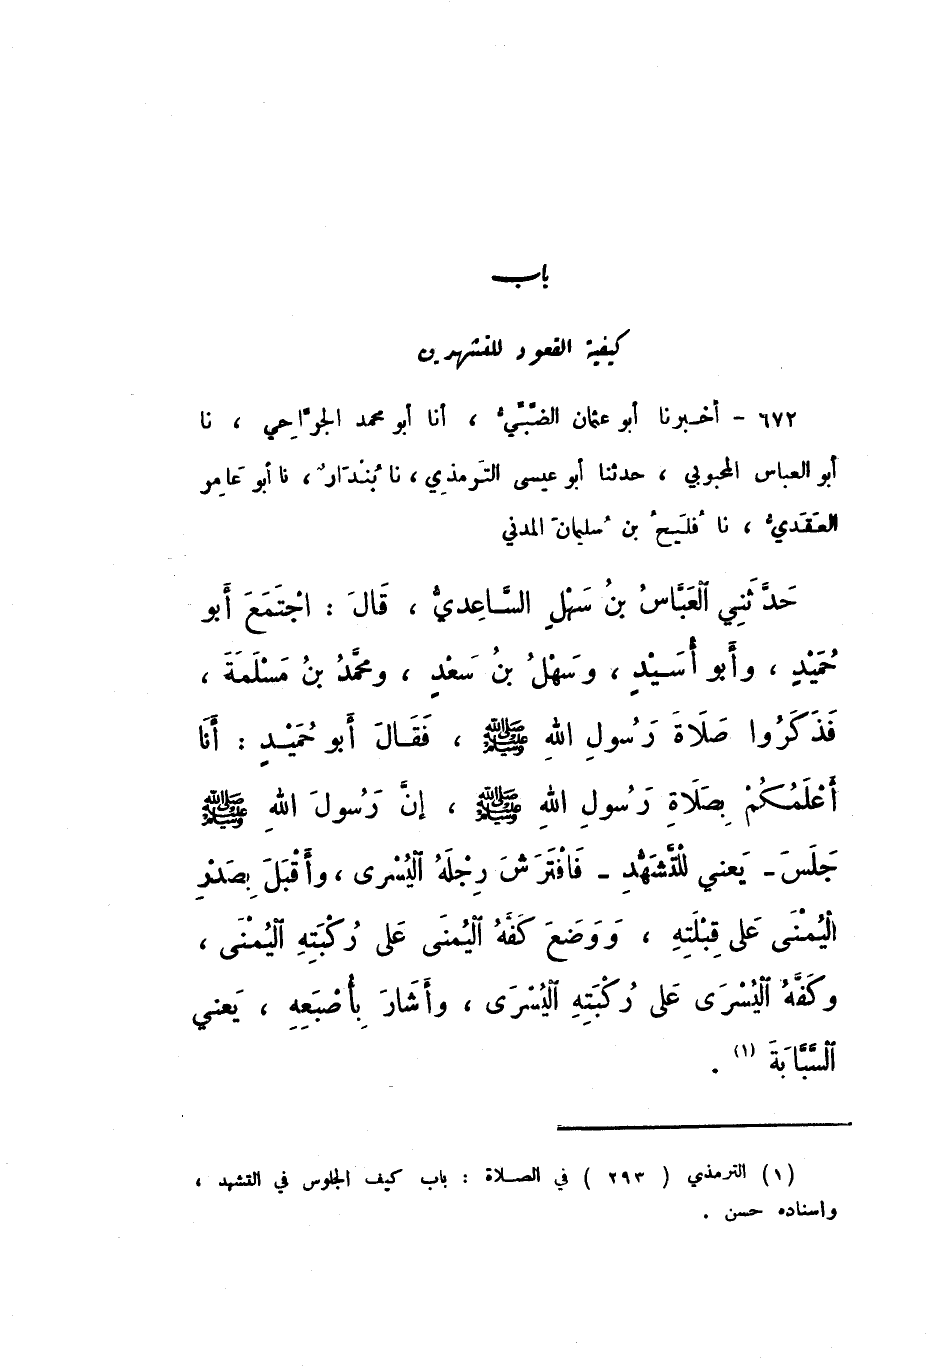 باب
كيفية القعود للتشهدين
٦٧٢ - أخبرنا أبو عثمان الضَّبِّيُّ ، أنا أبو محمد الجرَّاحِي ، نا
أبو العباس المحبوبي ، حدثنا أبو عيسى التِّرمذِي ، نا بُنْدَارٌ ، نا أبو عَامِر
العَقَدِيُّ ، نا فُلَيحُ بن سُليمانَ المدني
حَدَّثَنِي ٱلعَبَّاسُ بنُ سَهْلٍ السَّاعِديُّ ، قَالَ : اجْتَمَعَ أَبو
حُمَيْدٍ ، وأَبو أُسَيْدٍ ، وسَهْلُ بنُ سَعْدٍ ، ومحَمَّدُ بنُ مَسْلَمَةَ ،
فَذَكَرُوا صَلَاةَ رَسُولِ اللهِ ﷺ ، فَقَالَ أَبو حُمَيْدٍ : أَنَا
أَعْلَمُكُمْ بِصَلَاةِ رَسُولِ اللهِ ﷺ ، إنَّ رَسُولَ اللهِ ﷺ
جَلَسَ - يَعني لِلتَّشَهُّدِ - فَافْتَرَشَ رِجْلَهُ ٱليُسْرى ، وأَقْبَلَ بِصَدْرِ
ٱليُمْنَى عَلى قِبْلَتِهِ ، وَوَضَعَ كَفَّهُ ٱليُمنَى عَلى رُكْبَتِهِ ٱليُمْنَى ،
وكَفَّهُ ٱليُسْرَى عَلى رُكْبَتِهِ ٱليُسْرَى ، وأَشَارَ بِأُصْبَعِهِ ، يَعني
ٱلسَّبَّابَةَ (١) .
(١) الترمذي ( ٢٩٣ ) في الصلاة : باب كيف الجلوس في التشهد ،
واسناده حسن .